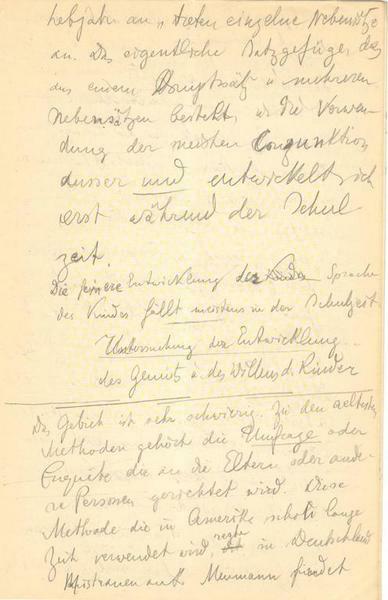 lebjahr an „treten einzelne Nebensätze
an. Das eigentliche Satzgefüge, das
aus einem Hauptsatz u mehreren
Nebensätzen besteht, u die Verwen-
dung der meisten Conjunktion
ausser und entwickelt sich
erst während der Schul
zeit.
Die fernere Entwicklung der Kinder Sprache
des Kindes fällt meistens in der Schulzeit
Untersuchung der Entwicklung
des Gemüts u. des Willens d. Kinder
Das Gebiet ist sehr schwierig. Zu den aeltesten
Methoden gehört die Umfrage oder
Enquête die an die Eltern oder ande-
re Personen gerichtet wird. Diese
Methode die in Amerika schon lange
Zeit verwendet wird, in Deutschland
Misstrauen auf. Meumann findet